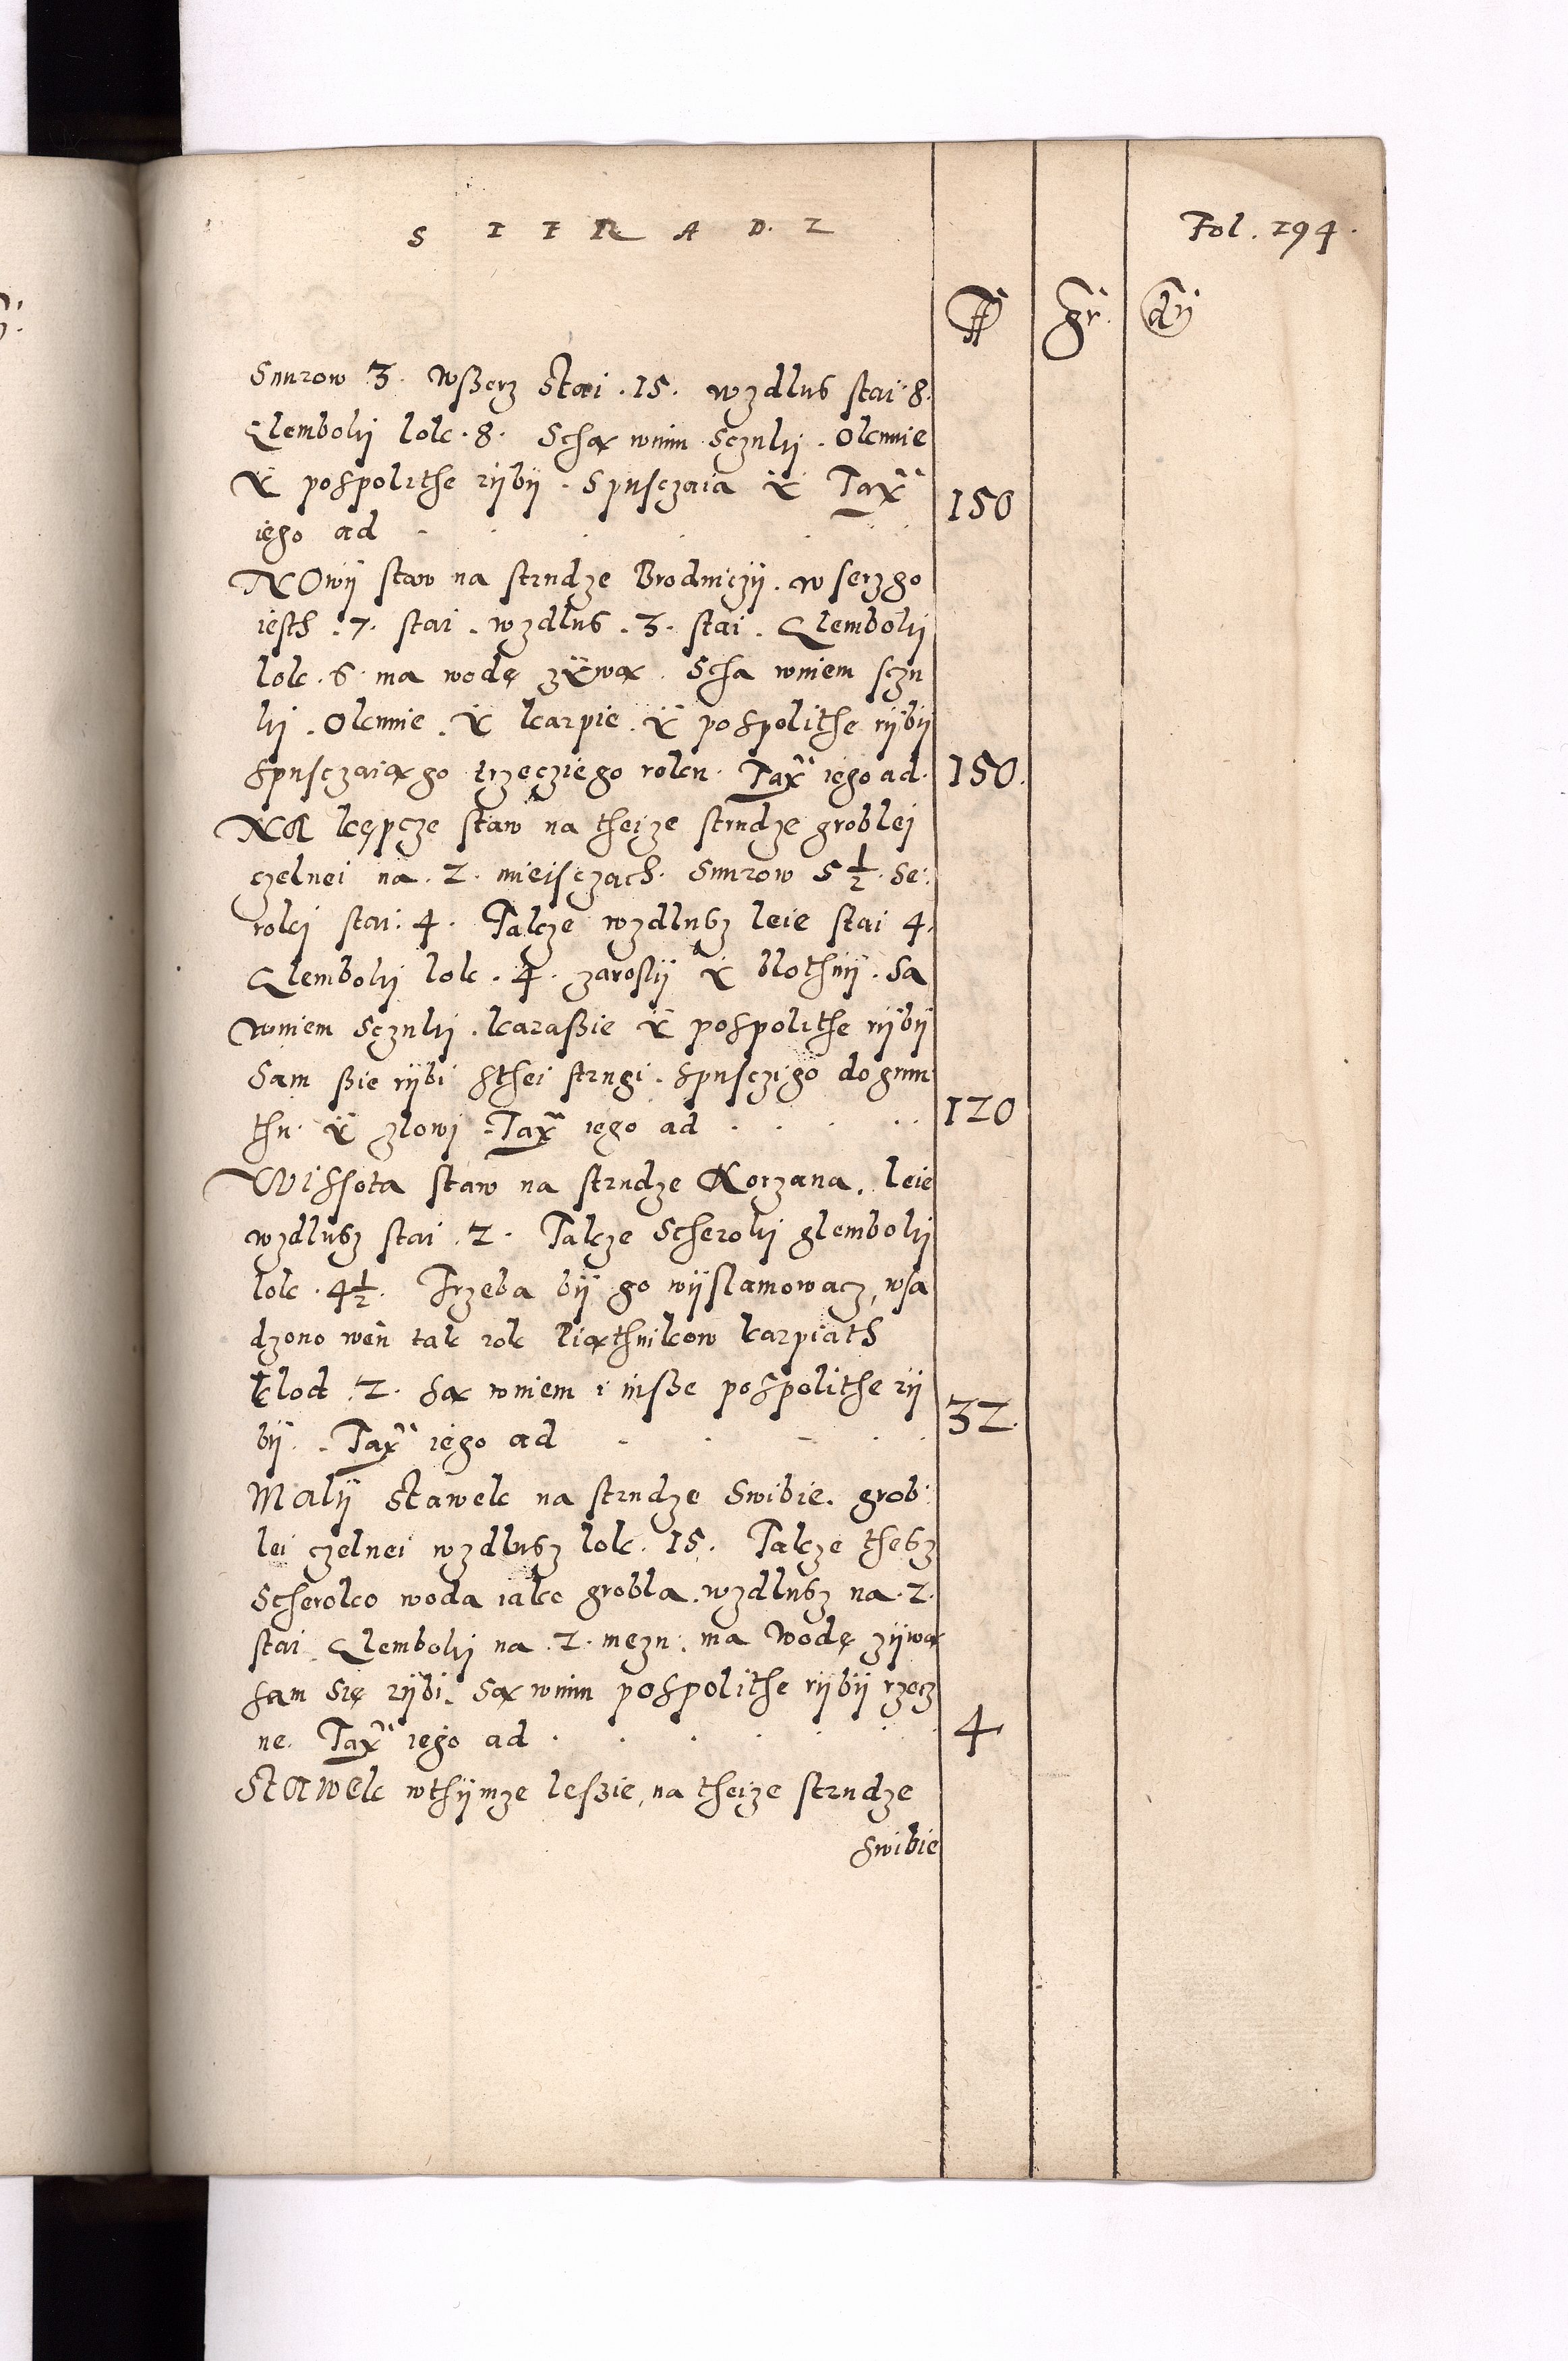 S I E R A D Z
Fol. 194.
fl gr. dn
Snurow 3. wßerz Stai . 15. wzdlus stai 8.
Glemboky lok . 8. Scha wnim Sczuky . Okunie
Y pospolithe ryby . Spusczaia Y Taxa
iego ad 150
NOwy staw na strudze Brodniczy. w serzgo
iesth . 7. stai . wzdlus . 3. stai . Glemboky
lok . 6. ma wodę zywa . Scha wniem sczu
ky . Okunie . Y karpie . Y pospolithe ryby
spusczaiago trzecziego roku . Taxa iego ad. 150.
NA kępcze staw na theize strudze groblei
czelnei na . 2. mieisczach. Snurow 5 1/2. Se:
roki stai . 4. Takze wzdlusz leie stai 4.
Glemboky lok . 4. zarosly Y blothny . Sa
wniem Sczuky . karaßie Y pospolithe ryby
Sam ßie rybi sthei strugi . spusczigo do grun
thu . Y zlowi . Taxa iego ad 120
WIssota staw na strudze Korzana . leie
wzdlusz stai . 2. Takze Scheroky glemboky
lok . 4 1/2. Trzeba by go wyslamowacz, wsa
dzono weń tak rok liathnikow karpiath
klod . 2. sa wniem i inße pospolithe ry
by . Taxa iego ad 32.
Maly Stawek na strudze Swibie. grob:
lei czelnei wzdlusz lok . 15. Takze thesz
Scheroko woda iako grobla . wzdlusz na . 2.
stai . Glemboky na . 2. męzu : ma wodę zywa
sam się rybi . Sa wnim pospolithe ryby rzecz
ne. Taxa iego ad 4
Stawek wthymze leßie, na theize strudze
swibie